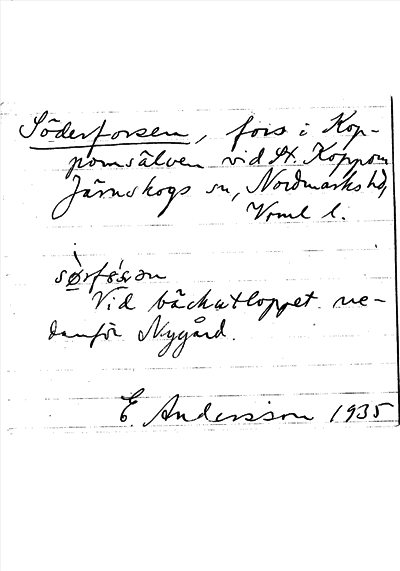 Söderforsen, fors i Kop-
pomsälven vid St. Koppom
Järnskogs sn, Nordmarks hd,
Vrml l.
Vid bäckutloppet ne-
danför Nygård.
E. Andersson 1935